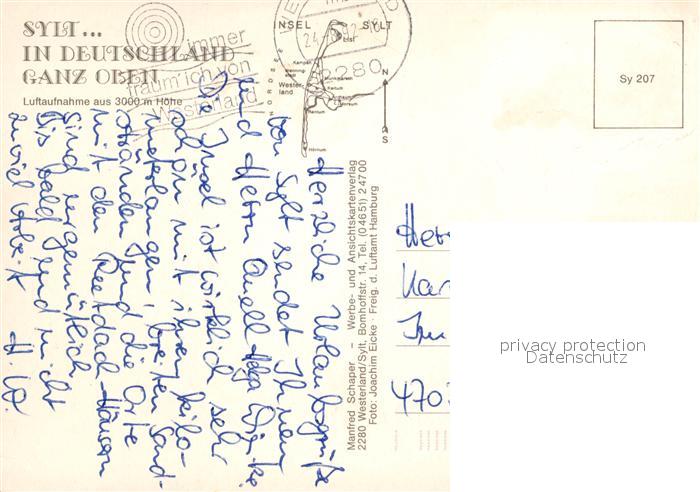 SYLT...
IN DEUTSCHLAND
GANZ OBEN
Luftaufnahme aus 3000 m Höhe
immer
träum' ich von
Westerland
2280
INSEL SYLT
NORDSEE
List
Kampen
Wenning-
stedt
Wester-
land
Munkmarsch
Keitum
Morsum
Rantum
Hörnum
N
S
Sy 207
Herzliche Urlaubsgrüße
von Sylt sendet Ihnen
und Herrn Quell Helga
Die Insel ist wirklich sehr
schön mit ihren kilo-
meterlangen, breiten Sand-
stränden und die Orte
mit den Reetdach-Häusern
sind urgemütlich.
Bis bald und nicht
zuviel Arbeit
H. W.
Manfred Schaper – Werbe- und Ansichtskartenverlag
2280 Westerland/Sylt, Bomhoffstr. 14, Tel. (04651) 24700
Foto: Joachim Eicke · Freig. d. Luftamt Hamburg
470
privacy protection
Datenschutz